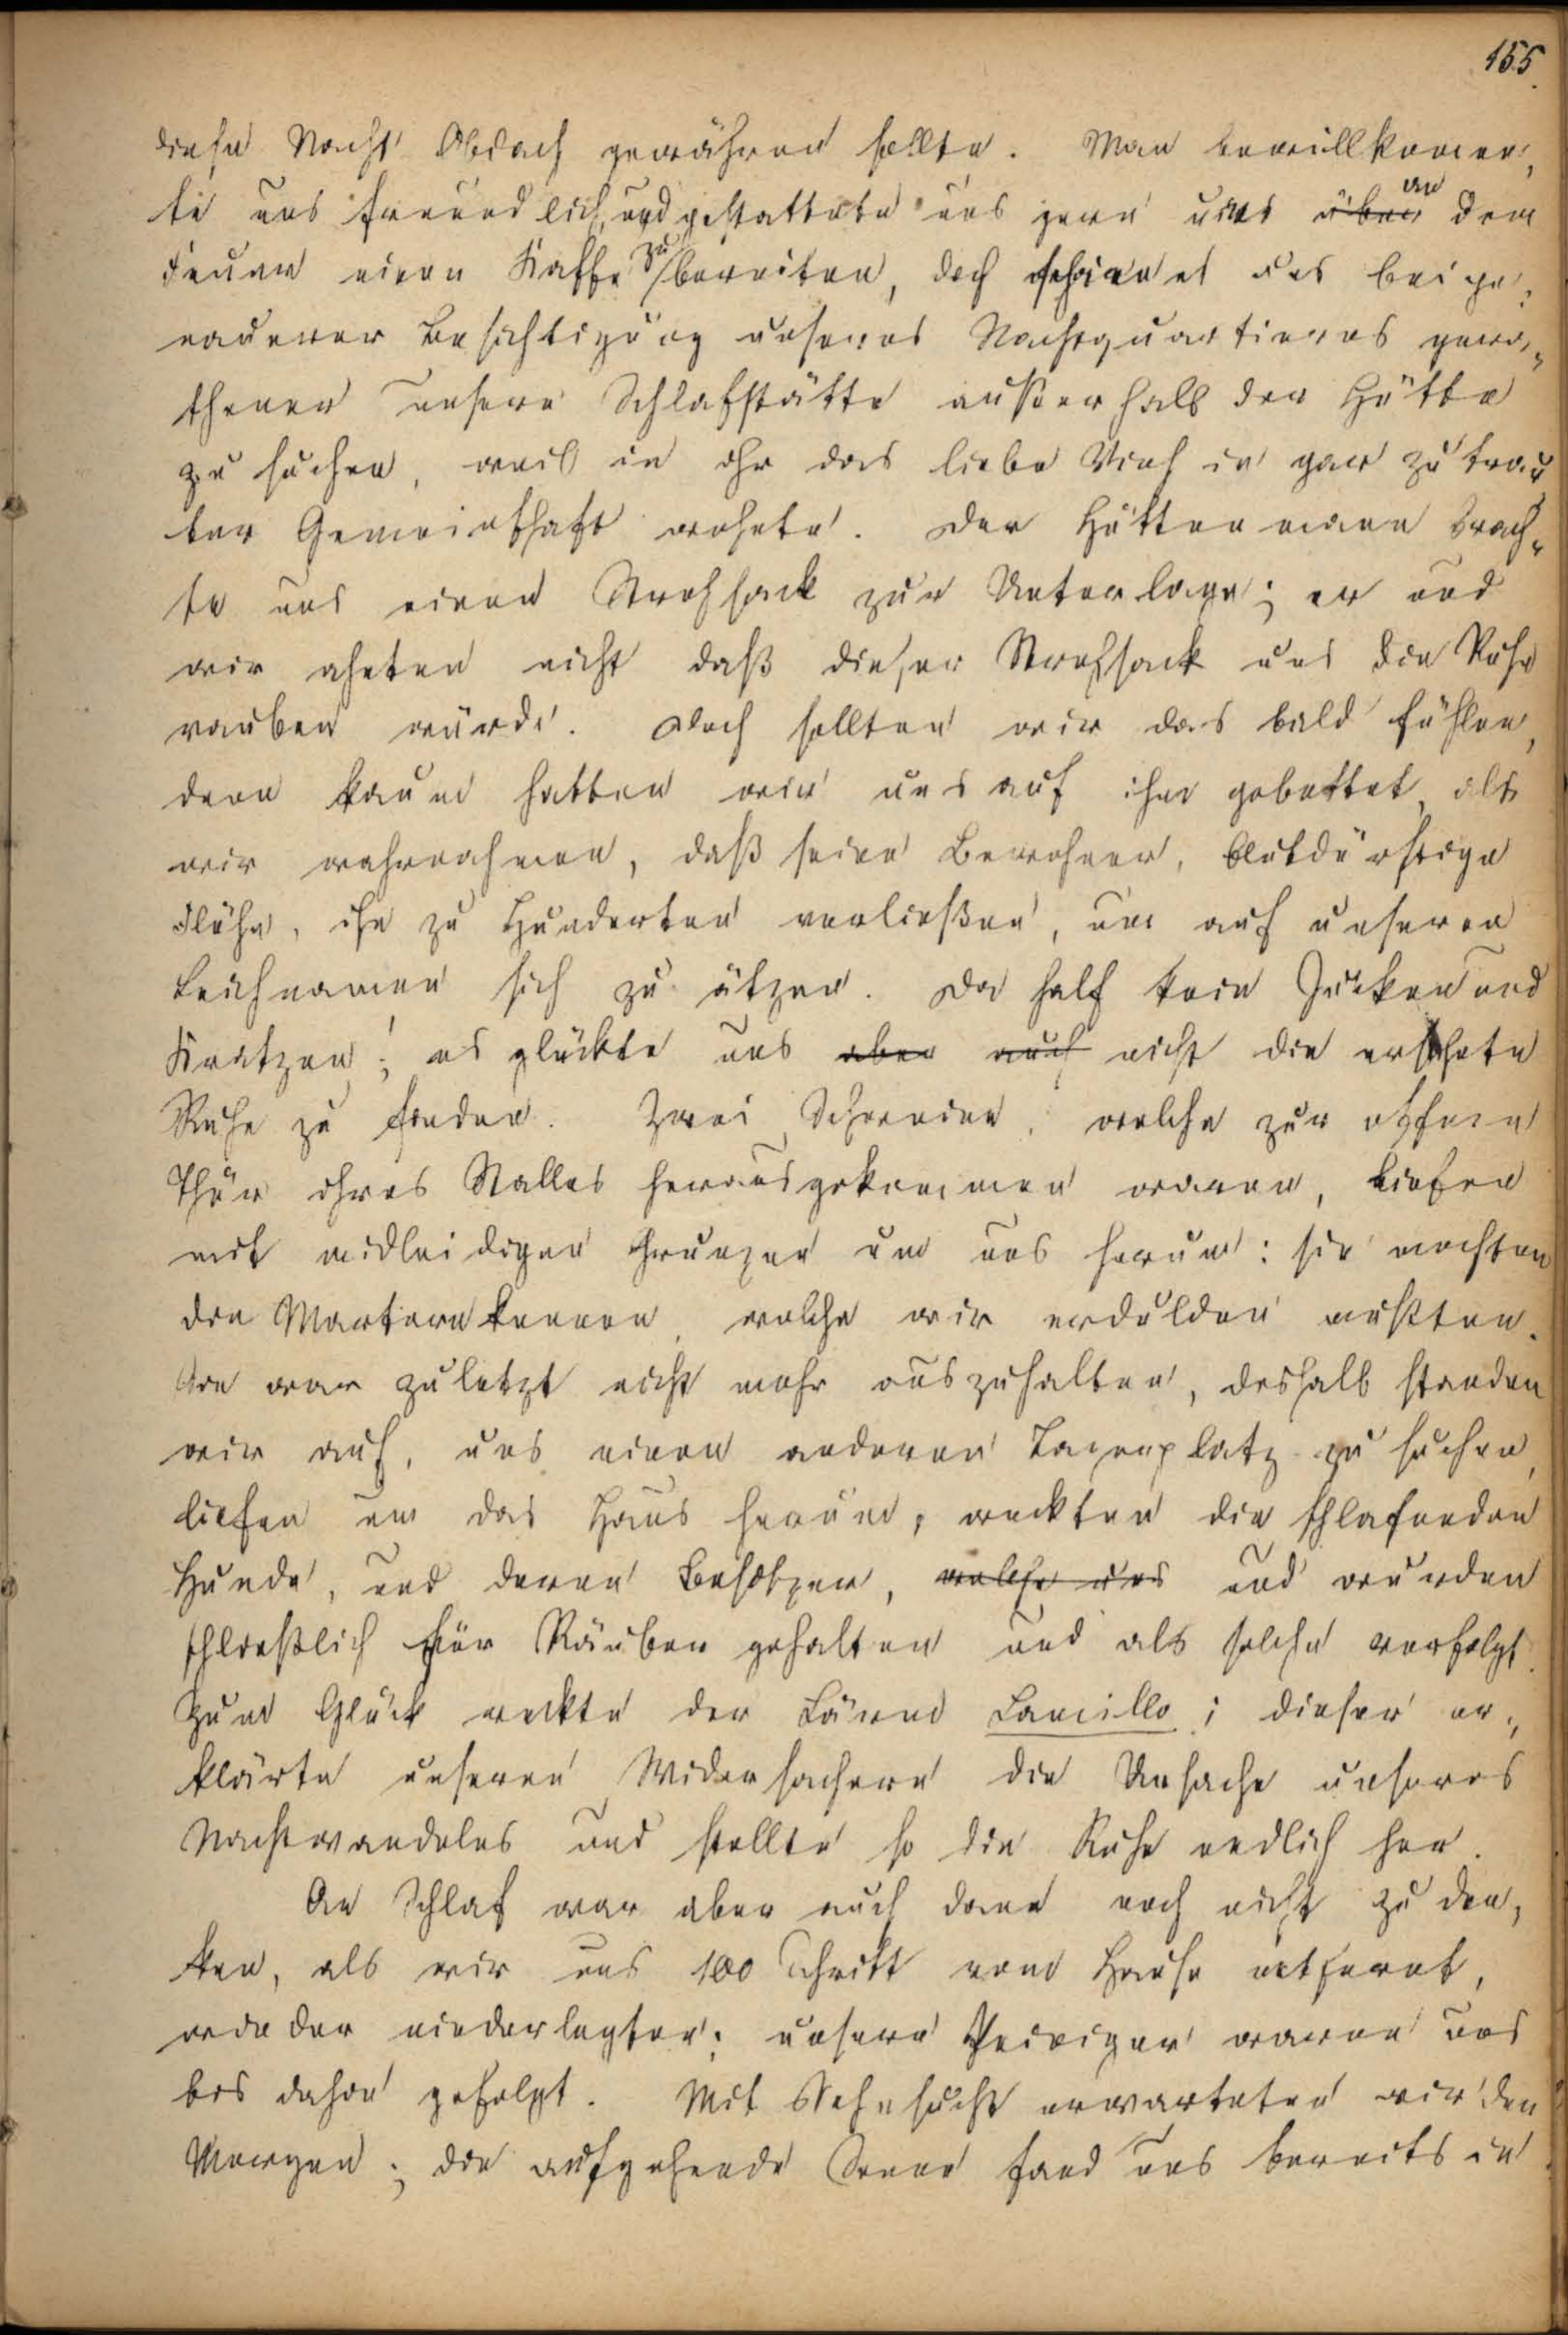 155.
diese Nacht Obdach gewähren sollte. Man bewillkomm-
te uns freundlich, und gestattete uns gern uns über an dem
Feuer einen Kaffe zu bereiten, doch schien es uns bei ge-
nauerer Besichtigung unseres Nachtquartieres gera-
thener unsere Schlafstätte außerhalb der Hütte
zu suchen, weil in ihr das liebe Vieh in gar zu trau
ter Gemeinschaft wohnte. Der Hüttenmann brach-
te uns einen Strohsack zur Unterlage; er und
wir ahnten nicht daß dieser Strohsack uns die Ruhe
rauben würde. Doch sollten wir das bald fühlen,
denn kaum hatten wir uns auf ihm gebettet, als
wir wahrnahmen, daß seine Bewohner, blutdürstige
Flöhe, ihn zu Hunderten verließen, um auf unseren
Leichnamen sich zu ätzen. Da half kein Jucken und
Kratzen; es glückte uns aber auch nicht die ersehnte
Ruhe zu finden. Zwei Schweine, welche zur offenen
Thür ihres Stalles herausgekommen waren, liefen
mit midleidigen Grunzen um uns herum: sie mochten
die Martern kennen, welche wir erdulden mußten.
war zuletzt nicht mehr auszuhalten, deshalb standen
wir auf, uns einen anderen Lagerplatz zu suchen,
liefen um das Haus herum, weckten die schlafenden
Hunde, und deren Besitzer, welche uns und wurden
schließlich für Räuber gehalten und als solche verfolgt.
Zum Glück weckte der Lärm Lamillo; dieser er-
klärte unseren Widersachern die Ursache unseres
Nachtwandelns und stellte so die Ruhe endlich her.
An Schlaf war aber auch dann noch nicht zu den-
ken, als wir uns 100 Schritt vom Hause entfernt,
wieder niederlegten; unsere Peiniger waren uns
bis dahin gefolgt. Mit Sehnsucht erwarteten wir den
Morgen; die aufgehende Sonne fand uns bereits in